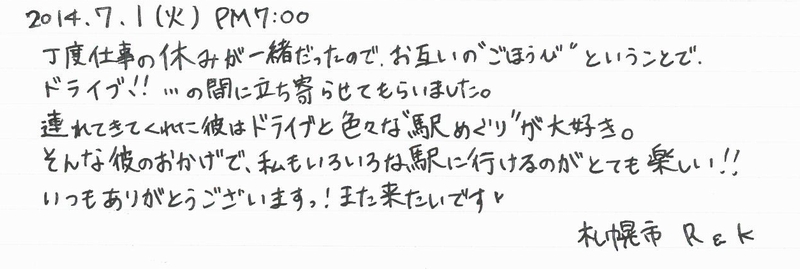 2014.7.1(火) PM7:00
丁度仕事の休みが一緒だったので、お互いの"ごほうび"ということで、
ドライブ!! …の間に立ち寄らせてもらいました。
連れてきてくれた彼はドライブと色々な"駅めぐり"が大好き。
そんな彼のおかげで、私もいろいろな駅に行けるのがとても楽しい!!
いつもありがとうございますっ!また来たいです♥
札幌市 R & K